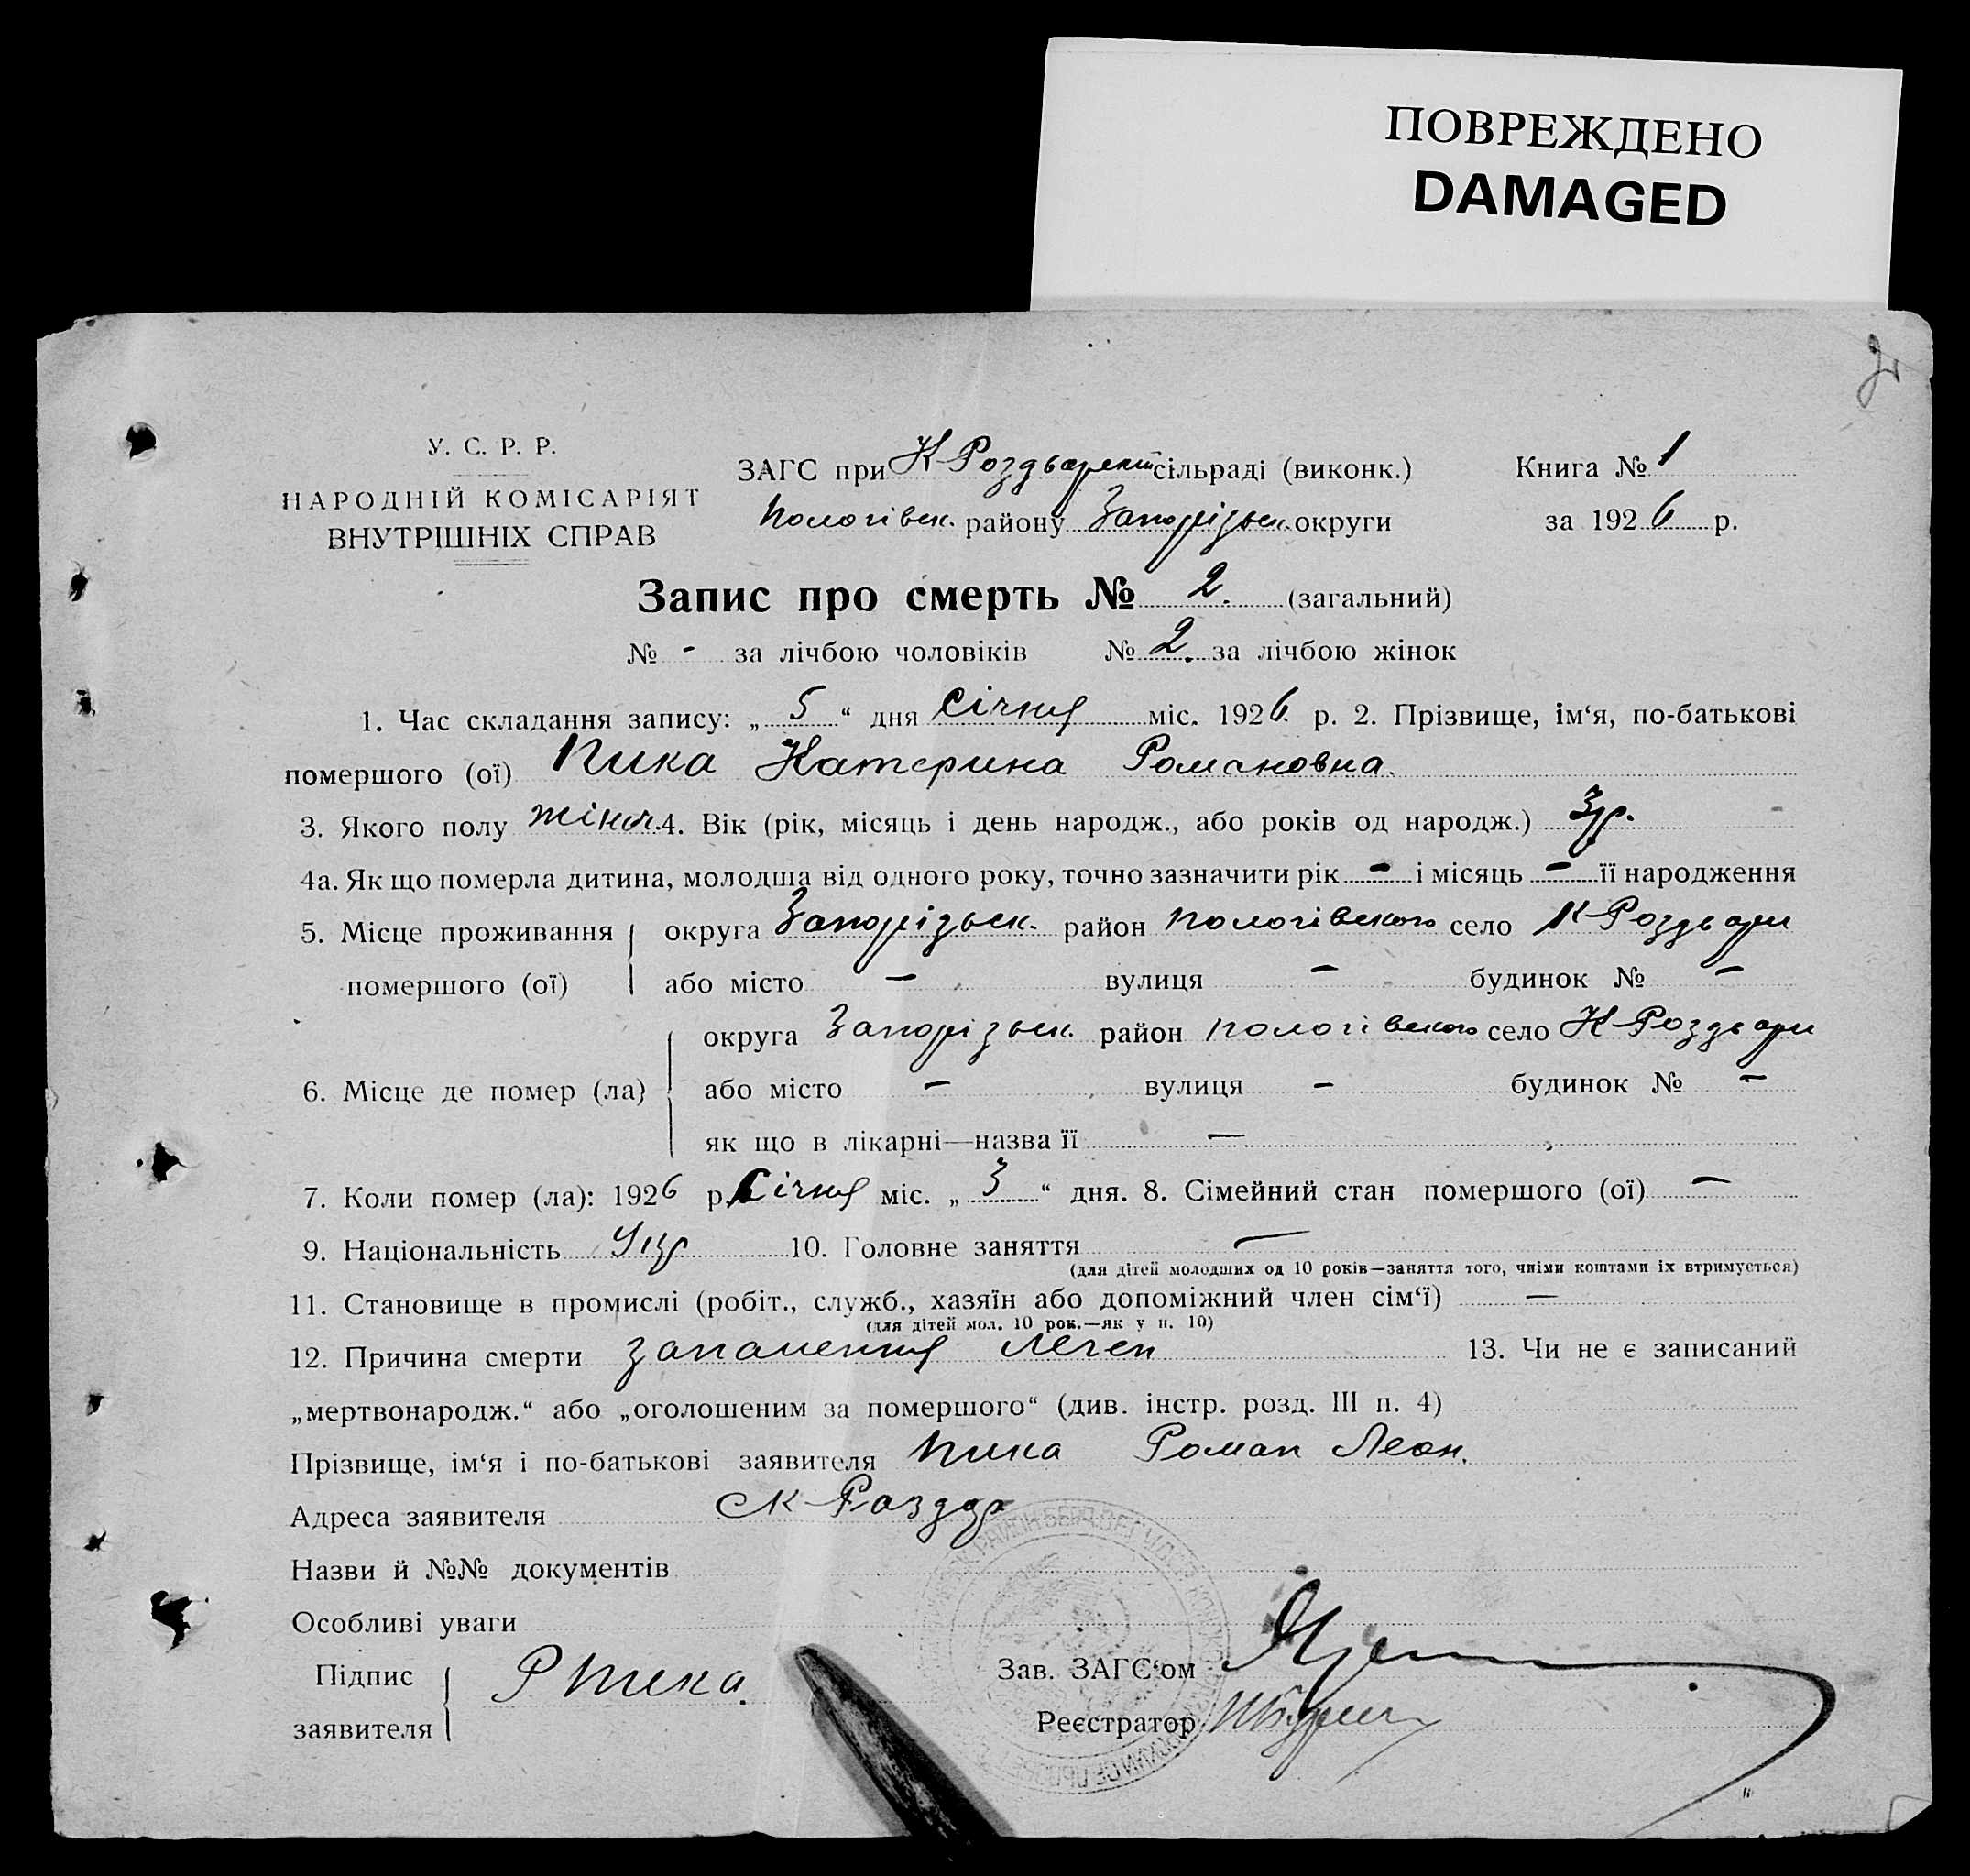 ПОВРЕЖДЕНО
DAMAGED
2
У. С. Р. Р.
НАРОДНІЙ КОМІСАРІЯТ
ВНУТРІШНІХ СПРАВ
ЗАГС при К-Роздорськ сільраді (виконк.) Книга № 1
Пологівськ. району Запорізьк. округи за 1926 р.
Запис про смерть № 2. (загальний)
№ - за лічбою чоловіків № 2. за лічбою жінок
1. Час складання запису: „ 5 “ дня Січня міс. 1926 р. 2. Прізвище, ім‘я, по-батькові
помершого (ої) Пика Катерина Романовна.
3. Якого полу жіноч. 4. Вік (рік, місяць і день народж., або років од народж.) 3 р.
4а. Як що померла дитина, молодша від одного року, точно зазначити рік - і місяць - її народження
5. Місце проживання помершого (ої) округа Запорізьк. район Пологівського село К-Роздори
або місто - вулиця - будинок № -
6. Місце де помер (ла) округа Запорізьк. район Пологівського село К-Роздори
або місто - вулиця - будинок № -
як що в лікарні—назва її —
7. Коли помер (ла): 1926 р. Січня міс. „ 3 “ дня. 8. Сімейний стан помершого (ої) —
9. Національність Укр 10. Головне заняття —
(для дітей молодших од 10 років—заняття того, чиїми коштами їх втримується)
11. Становище в промислі (робіт., служб., хазяїн або допоміжний член сім‘ї) —
(для дітей мол. 10 рок.—як у п. 10)
12. Причина смерти запалення леген 13. Чи не є записаний
„мертвонародж.“ або „оголошеним за помершого“ (див. інстр. розд. III п. 4)
Прізвище, ім‘я і по-батькові заявителя Пика Роман Леон.
Адреса заявителя с К-Роздор
Назви й №№ документів
Особливі уваги
Підпис заявителя Р Пика.
Зав. ЗАГС‘ом
Реєстратор